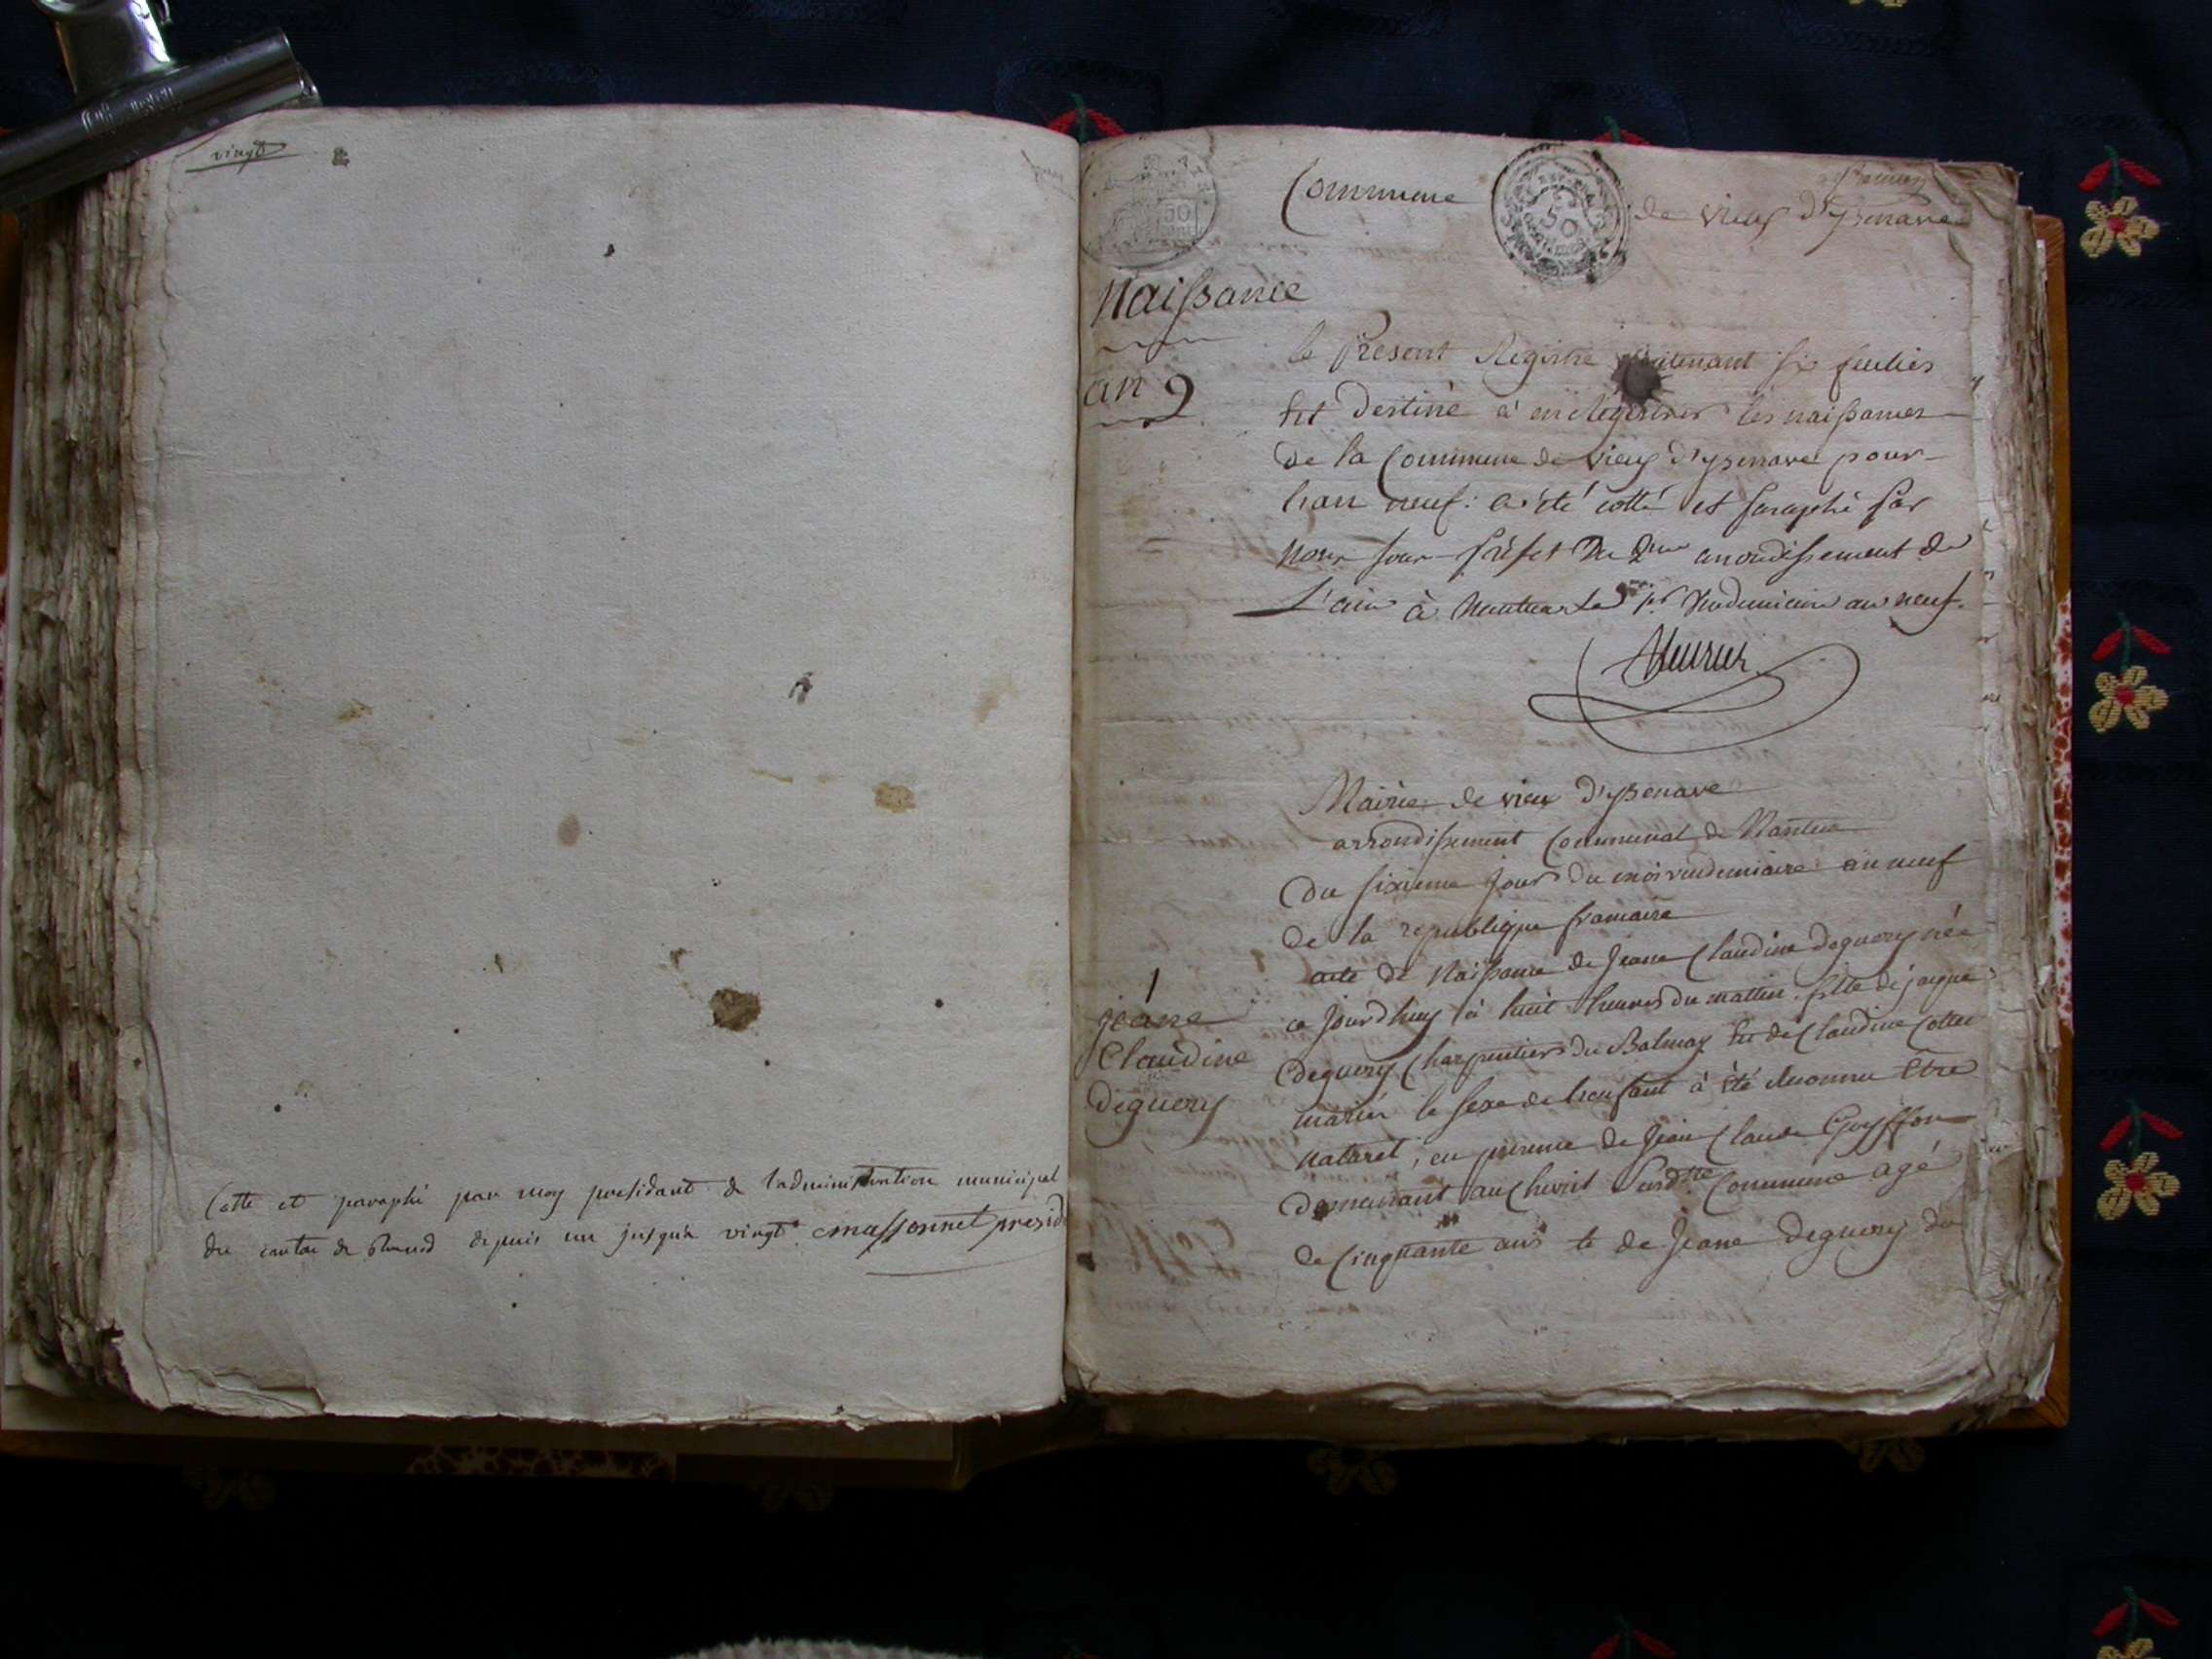 vingt
Cotte et paraphé par moy presidant de ladministration municipal
du canton de depuis un jusqua vingt massonnet presid
Commune de vieux d'yzenave
50
Naissance
an 9
le Present Registre contenant six feulies
est destiné à en Registrer les naissances
de la Commune de vieux d'yzenave pour
lan neuf: a été cotté et paraphé par
Nous sous-préfet du 2me arrondissement de
L'ain à Nantua le 1er Vendemiaire an neuf.
Mairie de vieux d'yzenave
arrondissement Communal de Nantua
Du sixieme jour du mois vendemiaire an neuf
de la republique francaise
acte de Naissance de Jeane Claudine deguery née
ce jourdhuy à huit heures du mattin fille de jacque
deguery Charpentier du Balmay et de Claudine Collet
mariés le sexe de lenfant à été Reconnu être
en presence de Jean Claude Goyffon
demeurant au susdne Commune agé
de Cinquante ans et de Jeane deguery du
1
jeane
Claudine
deguery